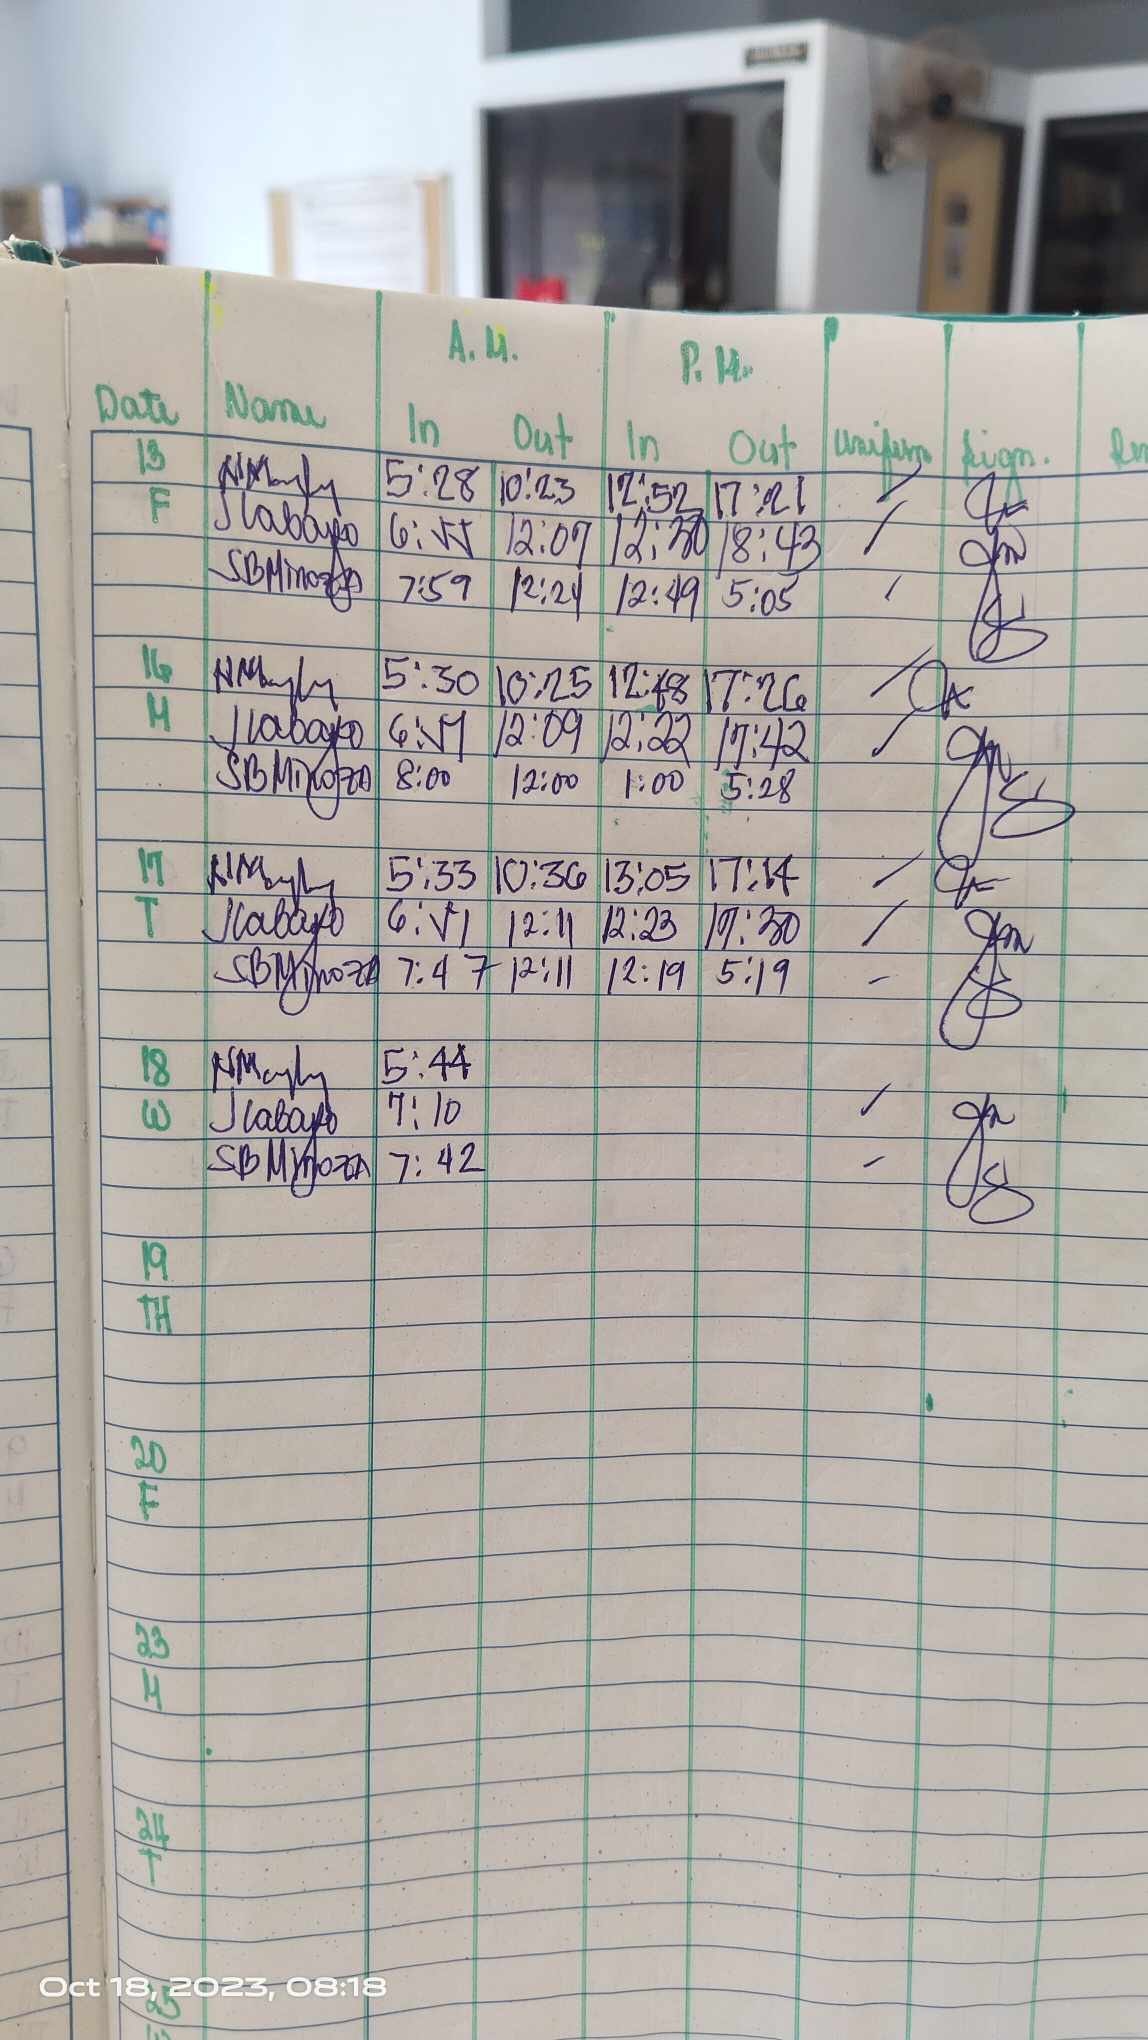 A.M. P.M.
Date Name In Out In Out Uniform Sign.
13 5:28 10:23 12:52 17:21
F JCabayo 6:55 12:07 12:30 18:43
SBMinoza 7:59 12:24 12:49 5:05
16 5:30 10:25 12:48 17:26
M JCabayo 6:51 12:09 12:22 17:42
SBMinoza 8:00 12:00 1:00 5:28
17 5:33 10:36 13:05 17:14
T JCabayo 6:51 12:11 12:23 17:30
SBMinoza 7:47 12:11 12:19 5:19
18 5:44
W JCabayo 7:10
SBMinoza 7:42
19
TH
20
F
23
M
24
T
25
Oct 18, 2023, 08:18